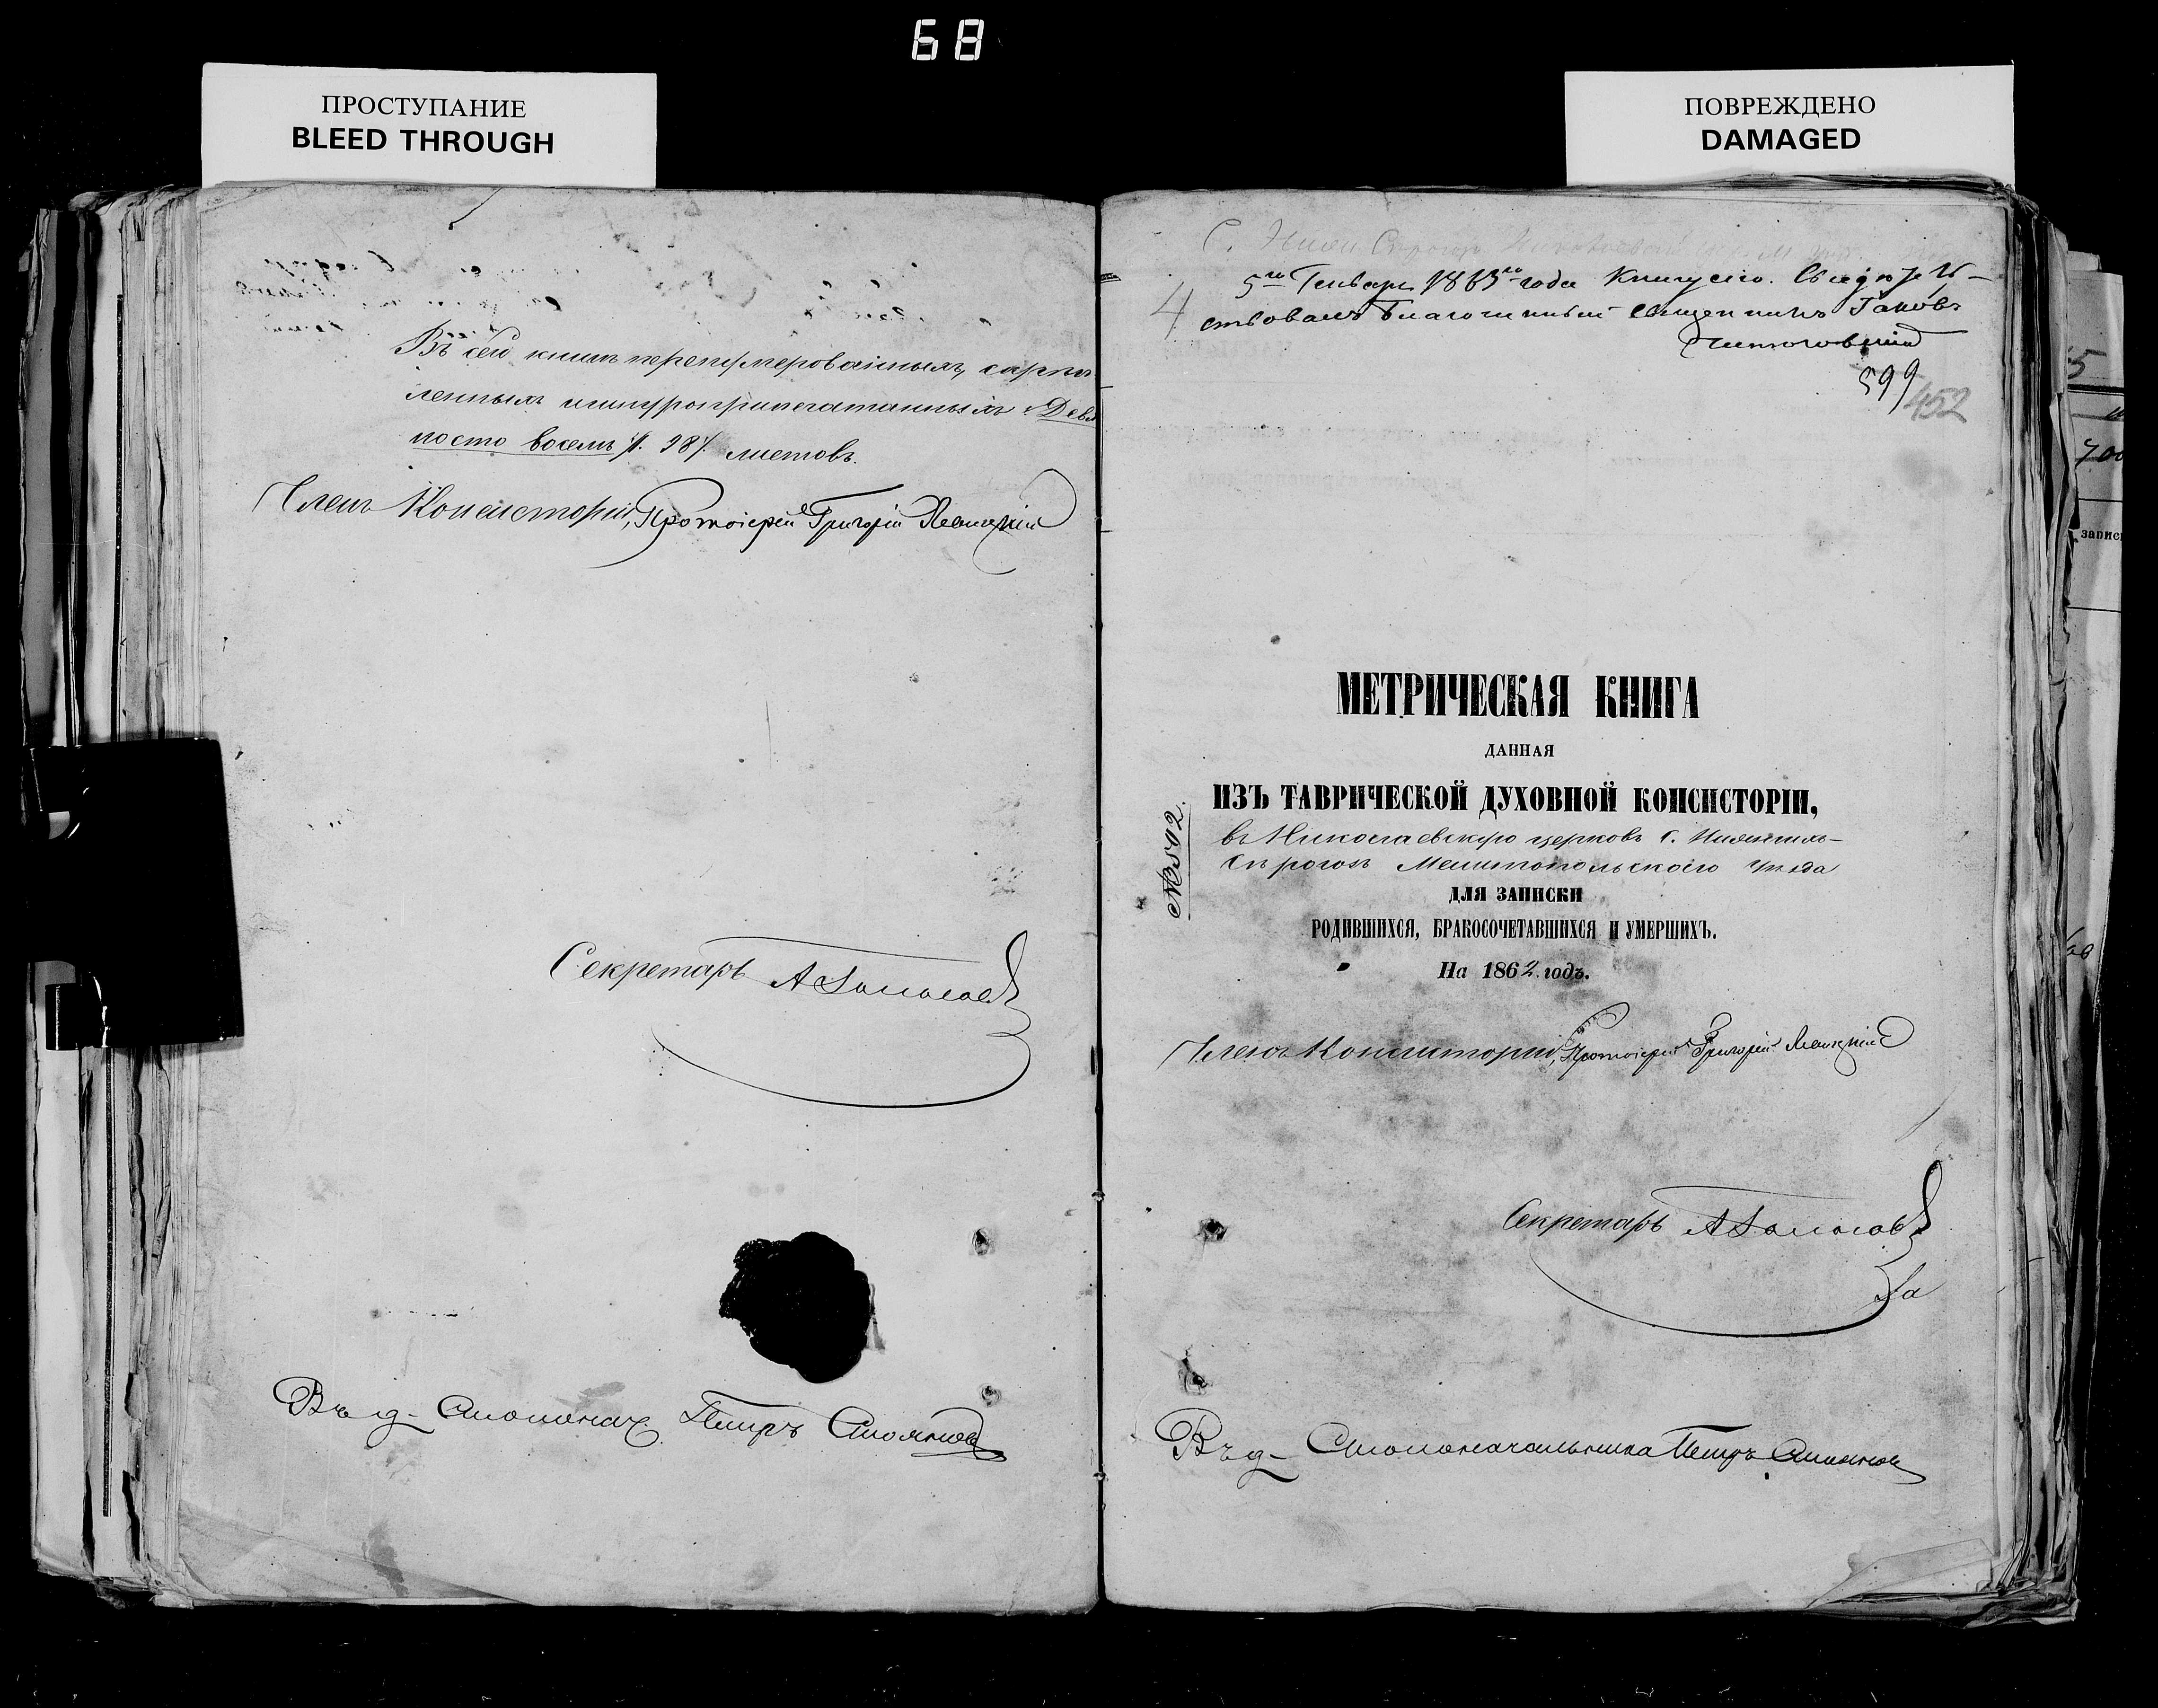 68
ПРОСТУПАНИЕ
BLEED THROUGH
ПОВРЕЖДЕНО
DAMAGED
Въ сей книгѣ перенумерованныхъ, скрѣп-
ленныхъ и шнуроприпечатанныхъ Девя
носто восемь /. 98 /. листовъ.
Членъ Консисторіи, Протоіерей Григорій
Секретарь А
Въ д. Столонач. Петръ
С.
5го Генваря 1863го года Книгу сію Свидѣтель-
ствовалъ Благочинный Священникъ Іаковъ
4
599
452
МЕТРИЧЕСКАЯ КНИГА
ДАННАЯ
ИЗЪ ТАВРИЧЕСКОЙ ДУХОВНОЙ КОНСИСТОРІИ,
въ Николаевскую церковь с. Нижнихъ-
Сѣрогозъ Мелитопольскаго уѣзда
№ 502.
ДЛЯ ЗАПИСКИ
РОДИВШИХСЯ, БРАКОСОЧЕТАВШИХСЯ И УМЕРШИХЪ.
На 1862 годъ.
Членъ Консисторіи, Протоіерей Григорій
Секретарь А
Въ д. Столоначальника Петръ
5
700
запис